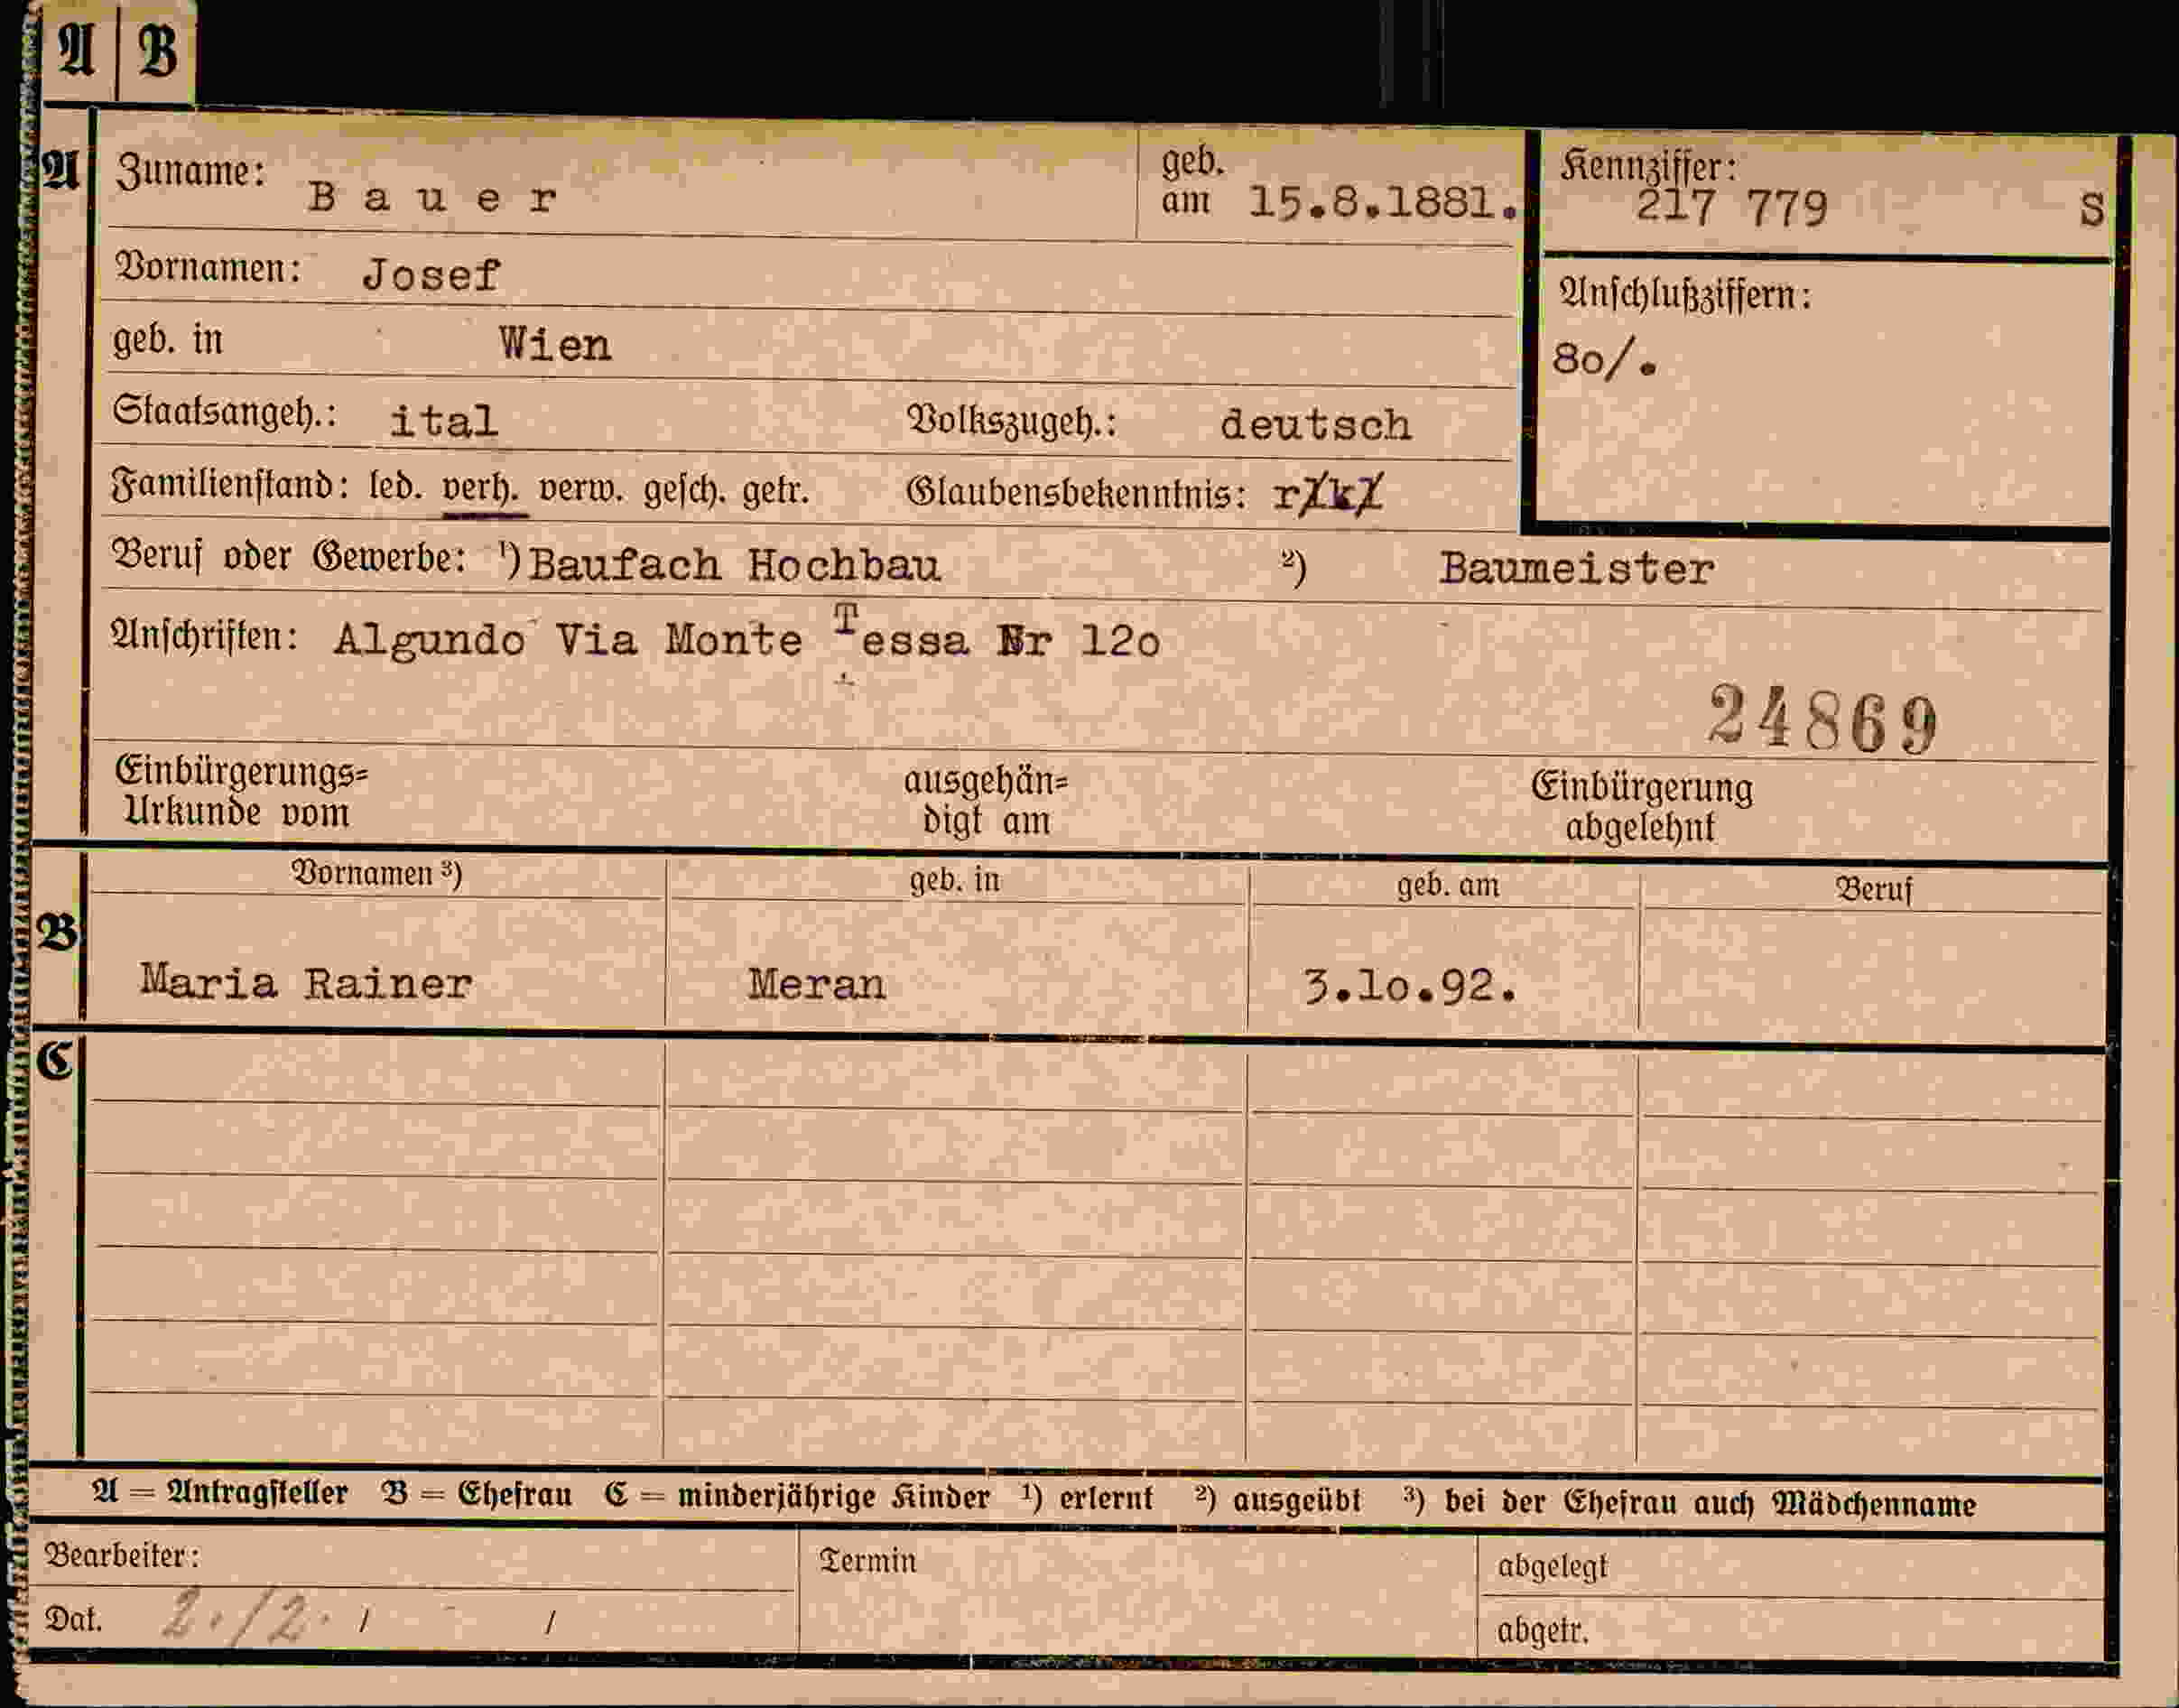 A B
A Zuname: Bauer geb. am 15.8.1881. Kennziffer: 217 779 S
Vornamen: Josef
Anschlußziffern:
geb. in Wien
80/.
Staatsangeh.: ital Volkszugeh.: deutsch
Familienstand: led. verh. verw. gesch. getr. Glaubensbekenntnis: r/k/
Beruf oder Gewerbe: ¹) Baufach Hochbau ²) Baumeister
Anschriften: Algundo Via Monte Tessa Nr 12o
24869
Einbürgerungs= ausgehän= Einbürgerung
Urkunde vom digt am abgelehnt
Vornamen ³) geb. in geb. am Beruf
B
Maria Rainer Meran 3.1o.92.
C
A = Antragsteller B = Ehefrau C = minderjährige Kinder ¹) erlernt ²) ausgeübt ³) bei der Ehefrau auch Mädchenname
Bearbeiter: Termin abgelegt
Dat. 2./2. / /
abgetr.